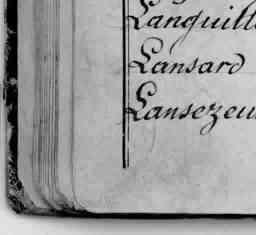 Languill
Lansard
Lansezeu